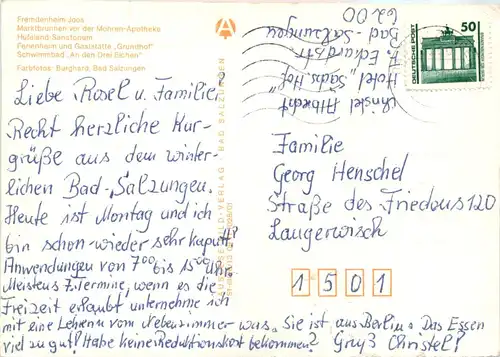 Fremdenheim Joos
Marktbrunnen vor der Mohren-Apotheke
Hufeland-Sanatorium
Ferienheim und Gaststätte „Grundhof"
Schwimmbad „An den Drei Eichen"
Farbfotos: Burghard, Bad Salzungen
Christel Albrecht
Hotel „Sächs. Hof"
Bad-Salzungen
6200
DEUTSCHE POST
50
Liebe Rosel u. Familie!
Recht herzliche Kur-
grüße aus dem winter-
lichen Bad-Salzungen.
Heute ist Montag und ich
bin schon wieder sehr kaputt!
Anwendungen von 7⁰⁰ bis 15⁰⁰ Uhr.
Meistens 7 Termine, wenn es die
Freizeit erlaubt unternehme ich
mit eine Lehrerin vom Nebenzimmer was. Sie ist aus Berlin. Das Essen
viel zu gut! Habe keine Reduktionskost bekommen? Gruß Christel!
BILD-VERLAG BAD SALZUNGEN
Familie
Georg Henschel
Straße des Friedens 120
Langerwisch
1501